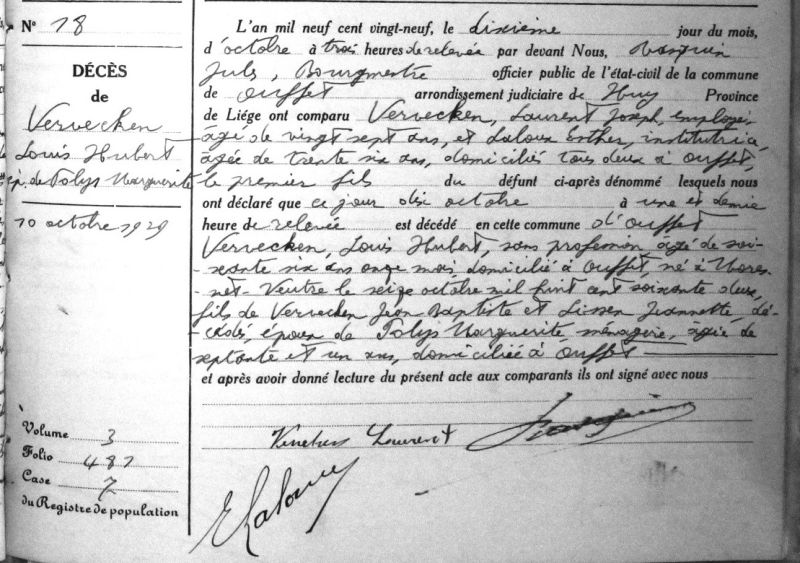 N° 18
DÉCÈS
de
Vervecken
Louis Hubert
ép. de Tolys Marguerite
10 octobre 1929
Volume 3
Folio 487
Case 7
du Registre de population
L'an mil neuf cent vingt-neuf, le dixième jour du mois,
d'octobre à trois heures de relevée par devant Nous,
Juls, Bourgmestre officier public de l'état-civil de la commune
de Ouffet arrondissement judiciaire de Huy Province
de Liége ont comparu Vervecken, Laurent Joseph, employé,
âgé de vingt sept ans, et Laloux Esther, institutrice,
âgée de trente six ans, domiciliés tous deux à Ouffet,
le premier fils du défunt ci-après dénommé lesquels nous
ont déclaré que ce jour dix octobre à une et demie
heure de relevée est décédé en cette commune d'Ouffet
Vervecken, Louis Hubert, sans profession âgé de soi-
xante six ans onze mois, domicilié à Ouffet, né à Mores-
net-Neutre le seize octobre mil huit cent soixante deux,
fils de Vervecken Jean Baptiste et Lissen Jeannette, dé-
cédés, époux de Tolys Marguerite, ménagère, âgée de
septante et un ans, domiciliée à Ouffet
et après avoir donné lecture du présent acte aux comparants ils ont signé avec nous
Laurent
E Laloux